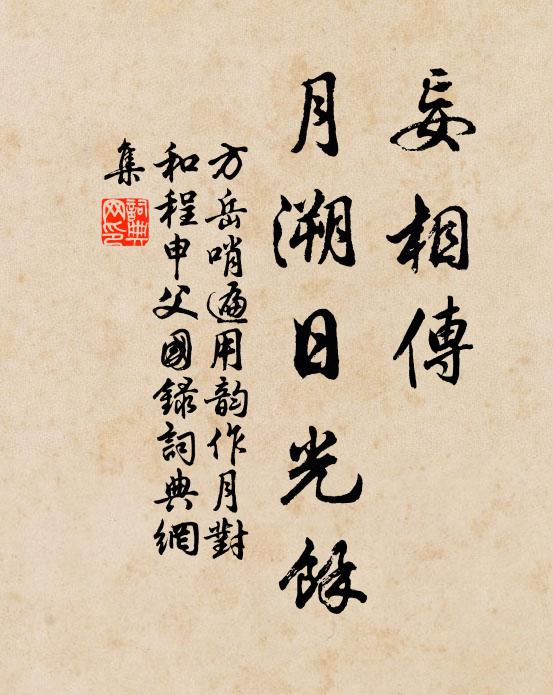 妄相傳
月溯日光餘
方岳哨遍用韵作月對
和程申父國錄詞典網
集
詞典網印